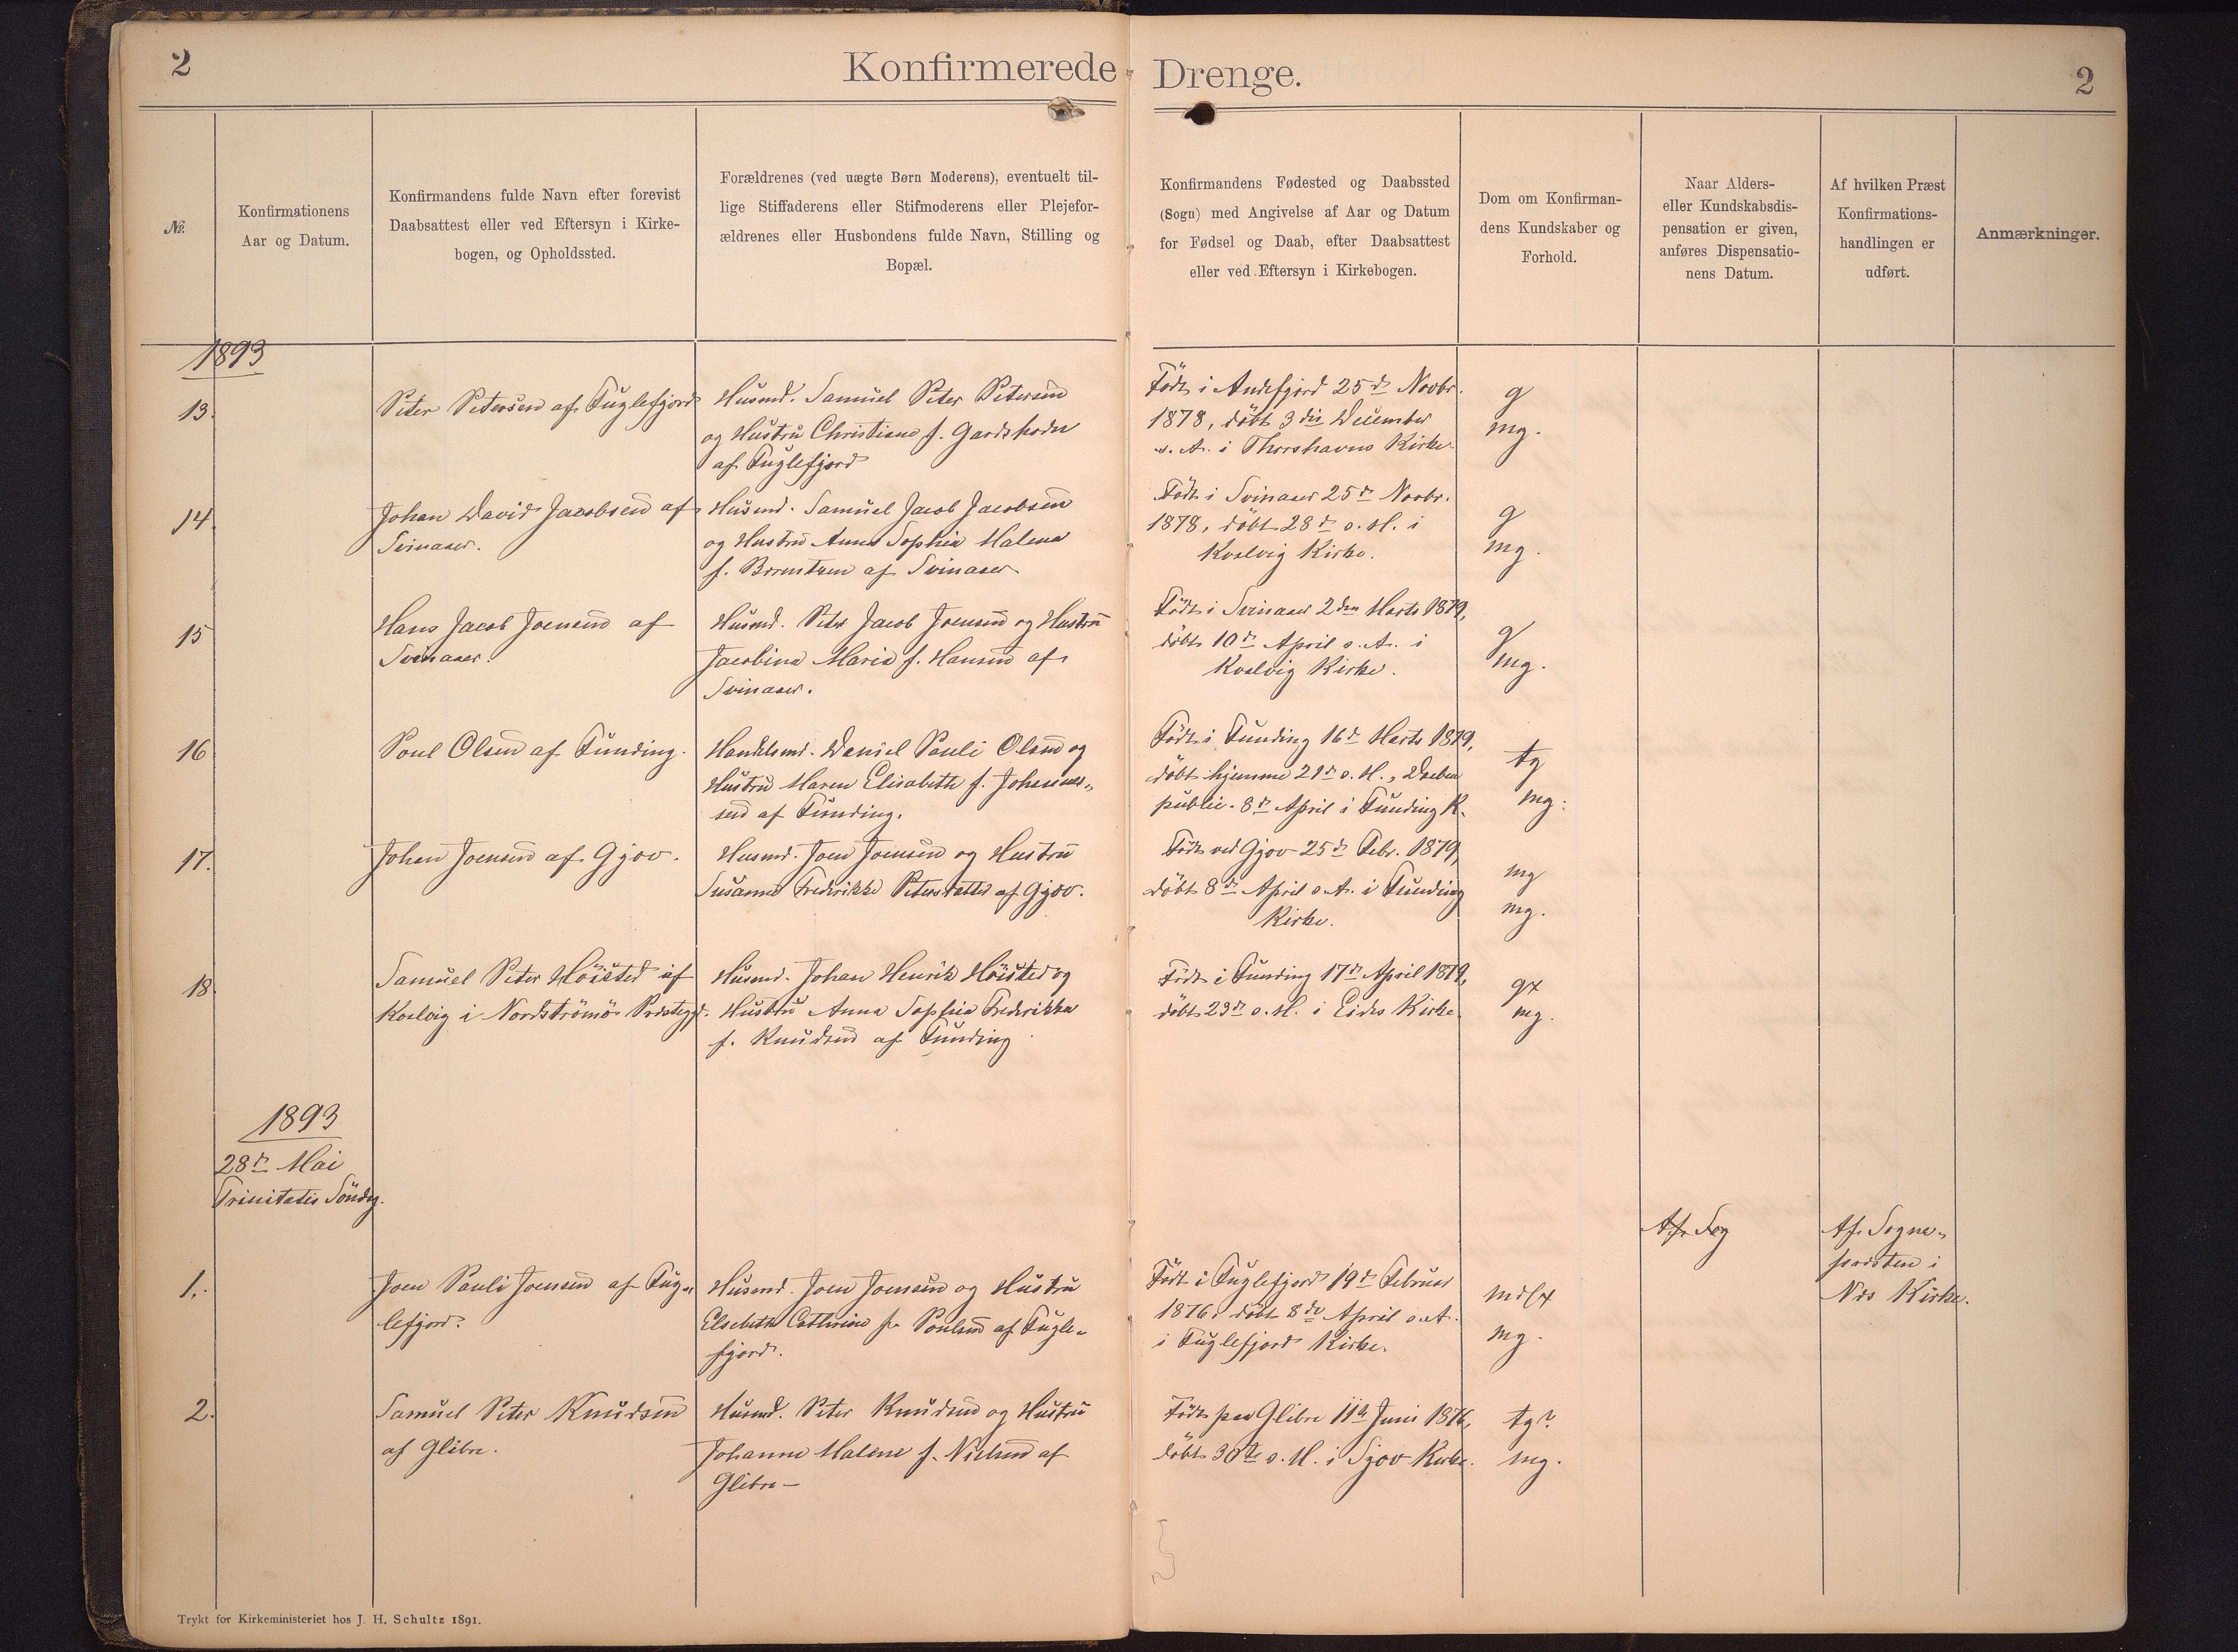 2
Konfirmerede Drenge.
2
No.
Konfirmationens
Aar og Datum.
Konfirmandens fulde Navn efter forevist
Daabsattest eller ved Eftersyn i Kirke-
bogen, og Opholdssted.
Forældrenes (ved uægte Børn Moderens), eventuelt til-
lige Stiffaderens eller Stifmoderens eller Plejefor-
ældrenes eller Husbondens fulde Navn, Stilling og
Bopæl.
Konfirmandens Fødested og Daabssted
(Sogn) med Angivelse af Aar og Datum
for Fødsel og Daab, efter Daabsattest
eller ved Eftersyn i Kirkebogen.
Dom om Konfirman-
dens Kundskaber og
Forhold.
Naar Alders-
eller Kundskabsdis-
pensation er given,
anføres Dispensatio-
nens Datum.
Af hvilken Præst
Konfirmations-
handlingen er
udført.
Anmærkninger.
1893
13.
Peter Petersen af Fuglefjord
Husmd. Samuel Peter Petersen
og Hustru Christiane f. Gardshodn
af Fuglefjord
Födt i Andefjord 25d Novbr.
1878, döbt 3die December
s. A. i Thorshavns Kirke.
g
mg.
14.
Johan David Jacobsen af
Svinaaer.
Husmd. Samuel Jacob Jacobsen
og Hustru Anna Sophia Malena
f. Berentsen af Svinaaer
Födt i Svinaaer 25d Novbr.
1878, döbt 28d s. M. i
Kvalvig Kirke.
g
mg.
15
Hans Jacob Joensen af
Svinaaer.
Husmd. Peter Jacob Joensen og Hustru
Jacobina Maria f. Hansen af
Svinaaer.
Födt i Svinaaer 2den Marts 1879,
döbt 10d April s. A. i
Kvalvig Kirke.
g
mg.
16
Poul Olsen af Funding.
Handelsmd. Daniel Pauli Olsen og
Hustru Maren Elisabeth f. Johannes-
sen af Funding.
Födt i Funding 16d Marts 1879,
döbt hjemme 21d s. M., Daaben
public. 8d April i Funding K.
tg
mg.
17.
Johan Joensen af Gjov.
Husmd. Joen Joensen og Hustru
Susanne Frederikke Petersdatter af Gjov.
Födt ved Gjov 25d Febr. 1879,
döbt 8d April s. A. i Funding
Kirke.
mg
mg.
18.
Samuel Peter Höisted af
Kvalvig i Nordströmö Præstegd.
Husmd. Johan Henrik Höisted og
Hustru Anna Sophia Frederikka
f. Knudsen af Funding
Födt i Funding 17d April 1879,
döbt 23d s. M. i Eides Kirke.
gx
mg.
1893
28d Mai
Trinitatis Söndg.
Af Sog
Af Sogne-
præsten i
Næs Kirke.
1.
Joen Pauli Joensen af Fug-
lefjord.
Husmd. Joen Joensen og Hustru
Elsebeth Cathrine f. Poulsen af Fugle-
fjord.
Födt i Fuglefjord 19d Februar
1876, döbt 8de April s. A.
i Fuglefjord Kirke.
mdlx
mg.
2.
Samuel Peter Knudsen
af Glibre.
Husmd. Peter Knudsen og Hustru
Johanne Malene f. Nielsen af
Glibre—
Födt paa Glibre 11te Juni 1876,
döbt 30te s. M. i Sjov Kirke.
tg?
mg.
Trykt for Kirkeministeriet hos J. H. Schultz 1891.